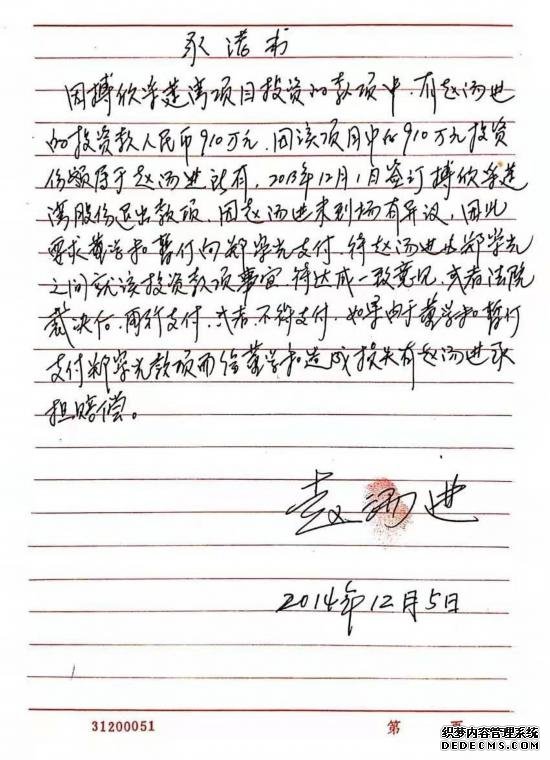 承诺书
因搏欣采莲湾项目投资的款项中,有赵汤进
的投资款人民币910万元,因该项目中的910万元投资
份额属于赵汤进所有,2013年12月1日签订搏欣采莲
湾股份退出款项,因赵汤进未到场有异议,因此
要求董学和暂行向郑学光支付,待赵汤进与郑学光
之间就该投资款项事宜,待达成一致意见,或者法院
裁决后,再行支付,或者不行支付,如果由于董学和暂行
支付郑学光款项而给董学和造成损失有赵汤进承
担赔偿。
赵汤进
2014年12月5日
31200051 第 页
织梦内容管理系统
DEDECMS.COM